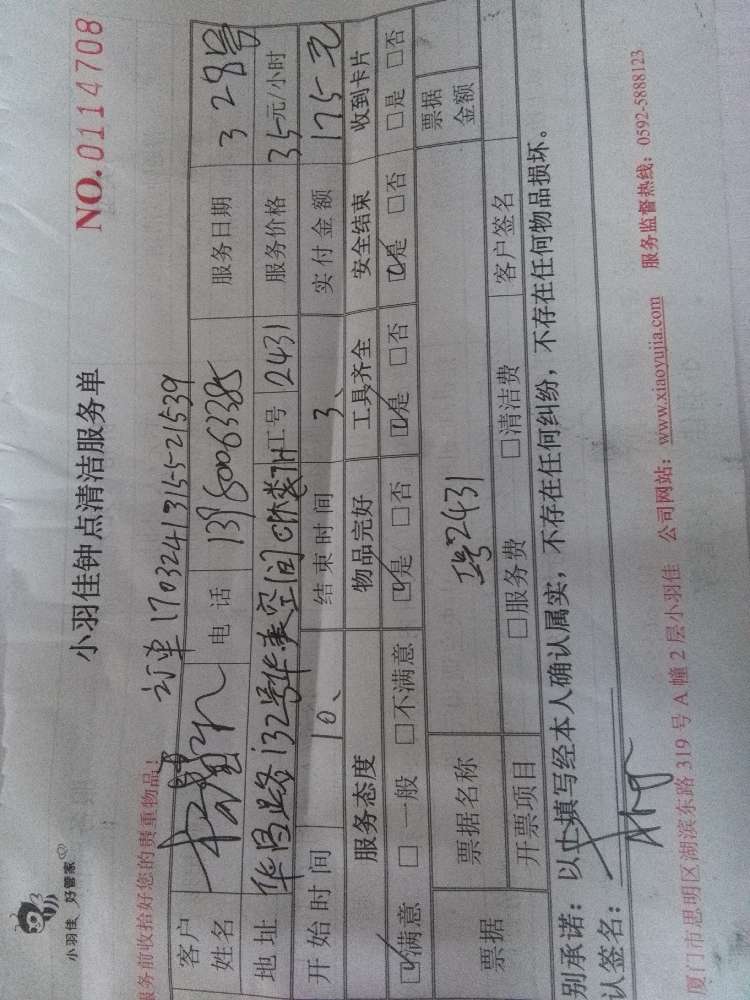 小羽佳 好管家
小羽佳钟点清洁服务单
NO. 0114708
服务前收拾好您的贵重物品！
订单 17032413155-21539
客户姓名 电话 13960063385 服务日期 3 28号
地址 华昌路132号华美空间C栋楼7H 工号 2431 服务价格 35元/小时
开始时间 10、 结束时间 3、 实付金额 175元
服务态度 物品完好 工具齐全 安全结束 收到卡片
☑满意 □一般 □不满意 ☑是 □否 ☑是 □否 ☑是 □否 □是 □否
票据 票据名称 工号2431 票据金额
开票项目 □服务费 □清洁费 客户签名
别承诺：以上填写经本人确认属实，不存在任何纠纷，不存在任何物品损坏。
认签名：
厦门市思明区湖滨东路 319 号 A 幢 2 层小羽佳 公司网站：www.xiaoyujia.com 服务监督热线：0592-5888123